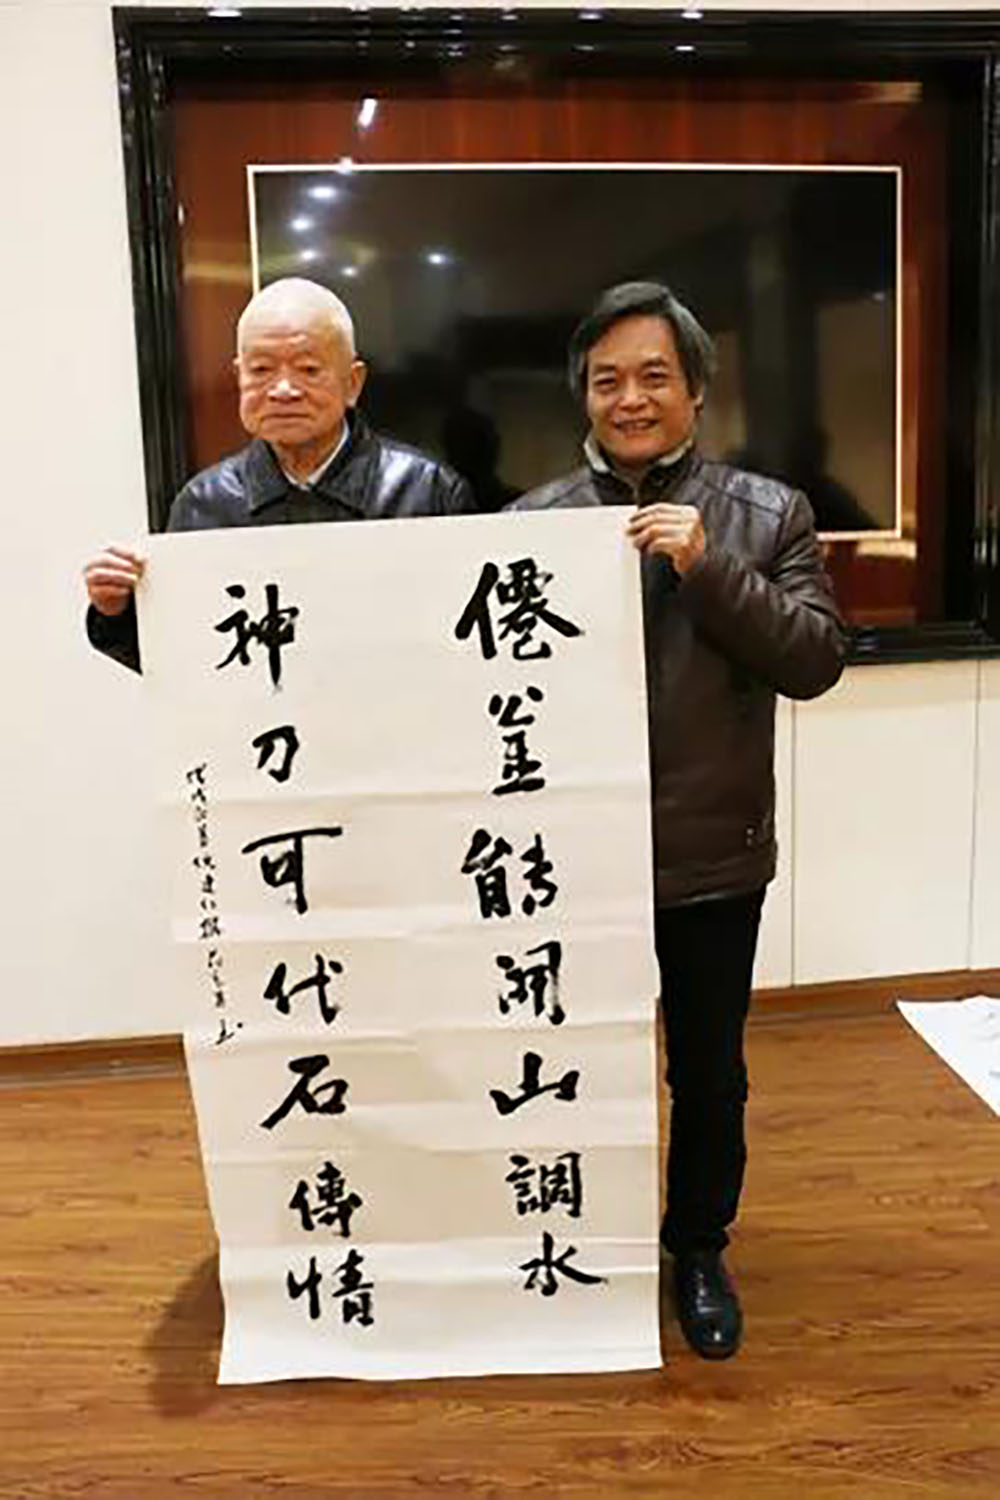 僊翁能開山調水
神刀可代石傳情